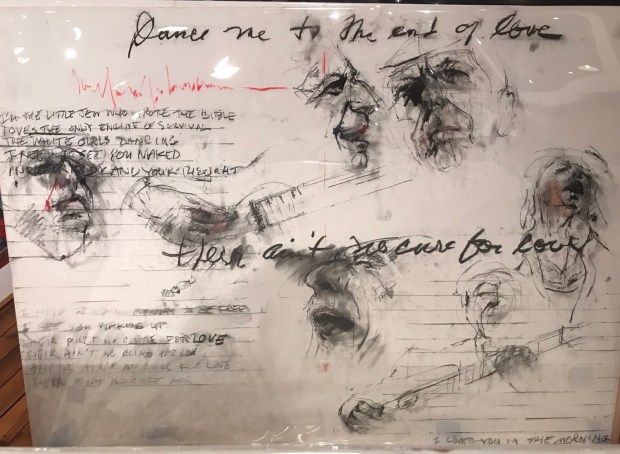 Dance me to the end of love
I'M THE LITTLE JEW WHO WROTE THE BIBLE
LOVE'S THE ONLY ENGINE OF SURVIVAL
THE WHITE GIRLS DANCING
TO SEE YOU NAKED
IN YOUR BODY AND YOUR THOUGHT
there ain't no cure for love
FREE
I SEE YOU WAKING UP
CURE FOR LOVE
AIN'T NO CURE FOR LOVE
AIN'T NO CURE FOR LOVE
I LOVED YOU IN THE MORNING